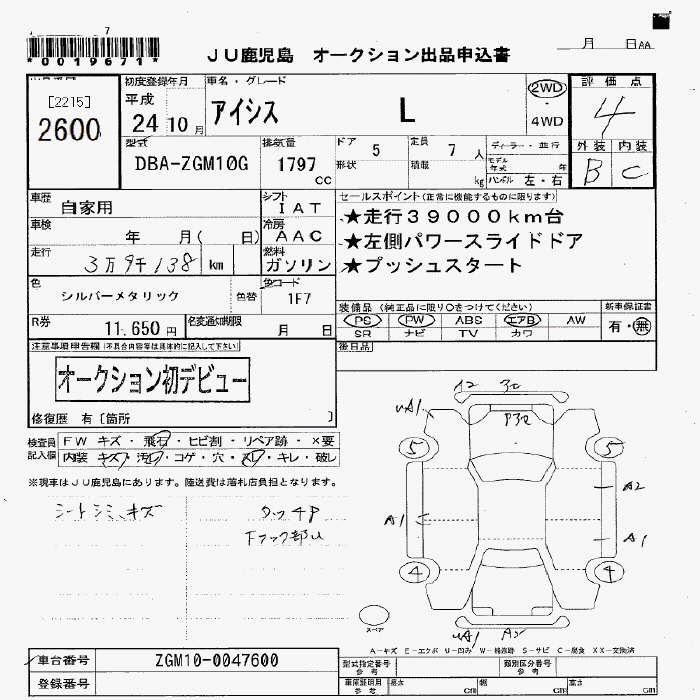 7
*0019671*
JU鹿児島 オークション出品申込書
月 日AA
[2215]
2600
初度登録年月
平成
24 10 月
車名・グレード
アイシス L
2WD
4WD
評価点
4
外装 内装
B C
型式
DBA-ZGM10G
排気量
1797
cc
ドア 5
形状
定員 7 人
積載 kg
ディーラー・並行
モデル年式 年
ハンドル 左・右
車歴 自家用
シフト IAT
車検 年 月( 日)
冷房 AAC
走行 3万9千138 km
燃料 ガソリン
セールスポイント(正常に機能するものに限ります)
★走行39000km台
★左側パワースライドドア
★プッシュスタート
色 シルバーメタリック
色替
色コード 1F7
R券 11,650 円
名変通知期限 月 日
装備品(純正品に限り○をつけてください)
PS PW ABS エアB AW
SR ナビ TV カワ
新車保証書
有・無
後日品
注意事項申告欄(不具合内容等は具体的に記入して下さい)
オークション初デビュー
修復歴 有[箇所 ]
検査員記入欄
FW キズ・飛石・ヒビ割・リペア跡・×要
内装 キズ・汚れ・コゲ・穴・スレ・キレ・破レ
※現車はJU鹿児島にあります。陸送費は落札店負担となります。
シートシミ、キズ
タッチP
A1
5
5
A2
A1
A1
4
4
スペア
A-キズ E-エクボ U-凹み W-補修跡 S-サビ C-腐食 XX-交換済
車台番号 ZGM10-0047600
登録番号
型式指定番号 参考
類別区分番号 参考
車庫証明用参考
長さ cm 幅 cm 高さ cm